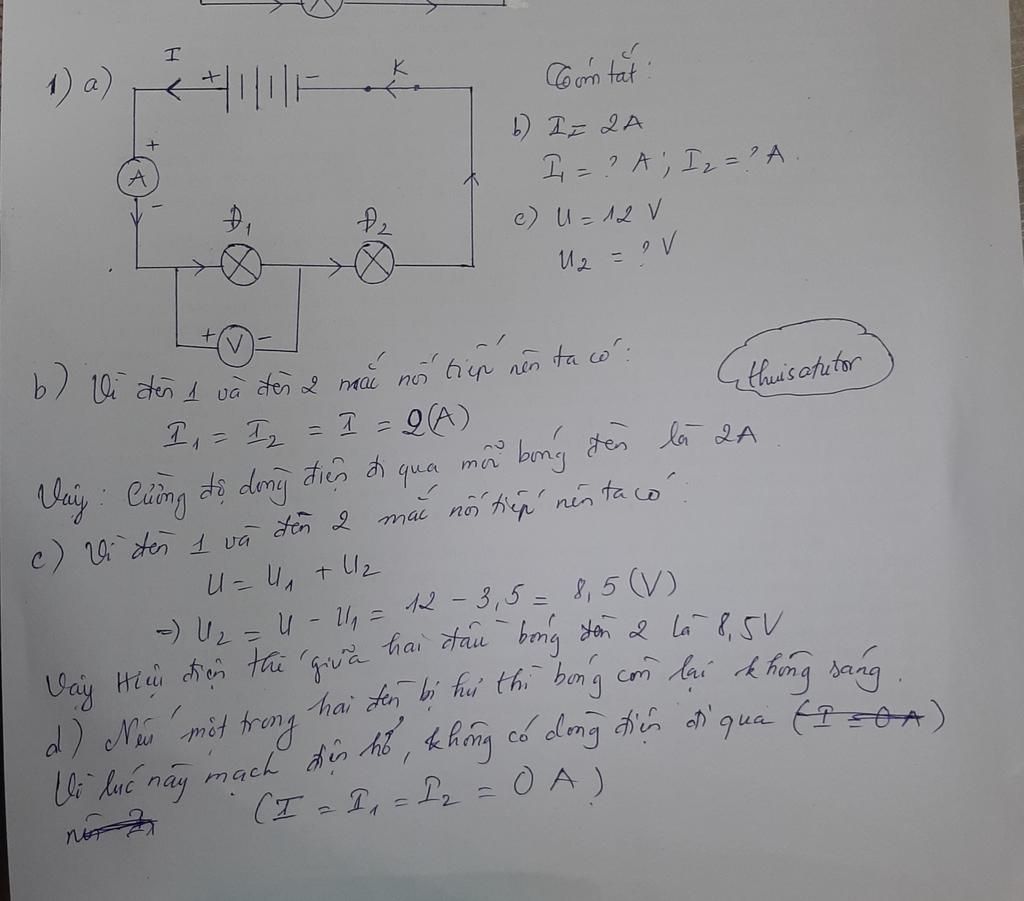 1) a)
I
+ -
K
+
A
-
Đ1
Đ2
+ V -
Tóm tắt:
b) I = 2A
I1 = ? A ; I2 = ? A.
c) U = 12 V
U2 = ? V
thuisatutor
b) Vì đèn 1 và đèn 2 mắc nối tiếp nên ta có:
I1 = I2 = I = 2(A)
Vậy: Cường độ dòng điện đi qua mỗi bóng đèn là 2A.
c) Vì đèn 1 và đèn 2 mắc nối tiếp nên ta có:
U = U1 + U2
=> U2 = U - U1 = 12 - 3,5 = 8,5 (V)
Vậy Hiệu điện thế giữa hai đầu bóng đèn 2 là 8,5V
d) Nếu một trong hai đèn bị hư thì bóng còn lại không sáng.
Vì lúc này mạch điện hở, không có dòng điện đi qua (I = 0A)
(I = I1 = I2 = 0 A)